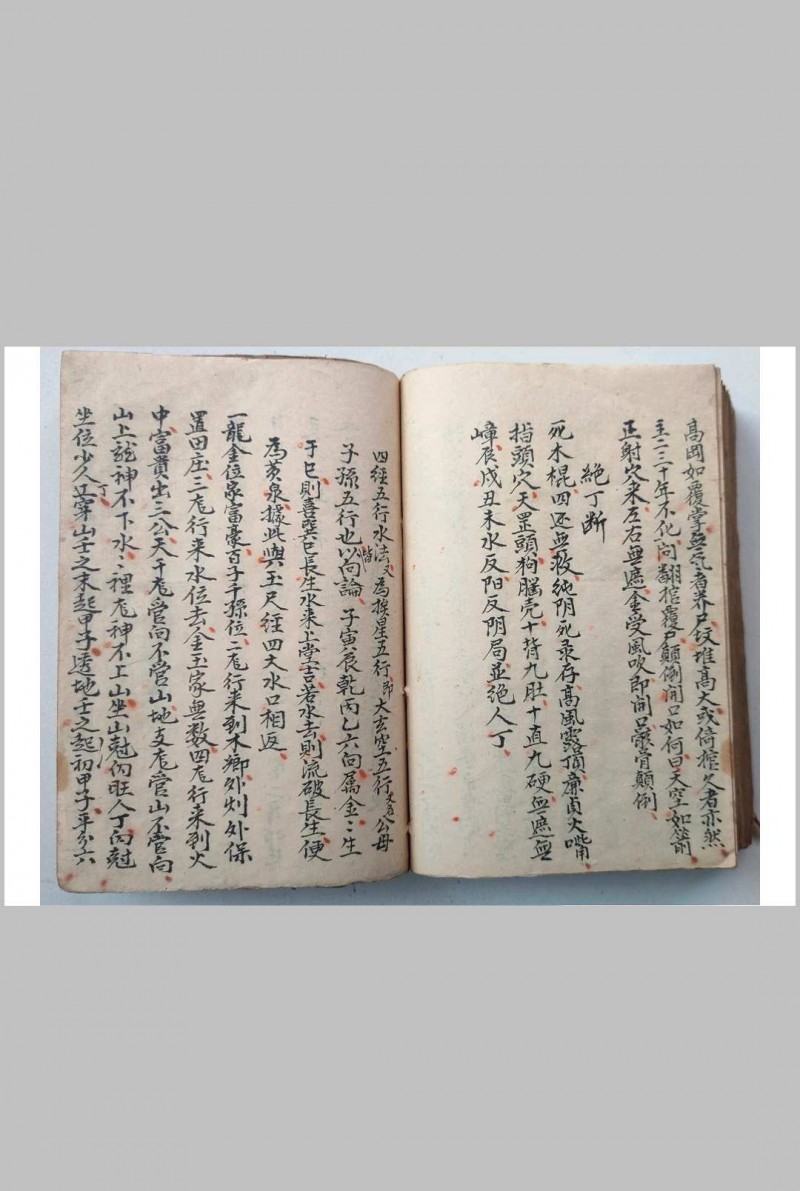 高岡如覆掌無氣者养尸坟堆高大或倚棺久者亦然
主二三十年不化向翻棺覆尸顛倒開口如何曰天空如箭
正射穴来左右無遮金受風吹即開口骸骨顛倒
絶丁断
死木棍四还無救純阴死录存高風露頂廉卤火嘴
指頭穴天罡頭狗腦壳十背九肚十直九硬無遮無
嶂辰戌丑未水反阳反阴局並絶人丁
四經五行水法又為挨星五行即大玄空五行又名公母
子孫五行也皆以向論子寅辰乾丙乙六向属金〻生
于巳則喜巽巳長生水来上堂吉若水去則流破長生便
為黄泉據此與玉尺經四大水口相返
一龍金位家富豪百子千孫位二龙行来到木鄉外州外保
置田庄三龙行来水位去金玉家無数四龙行来到火
中富貴出三公天干龙管向不管山地支龙管山不管向
山上龍神不下水〻裡龙神不上山坐山尅向旺人丁向尅
坐位少人丁正穿山壬之末起甲子透地壬之初起甲子平分六